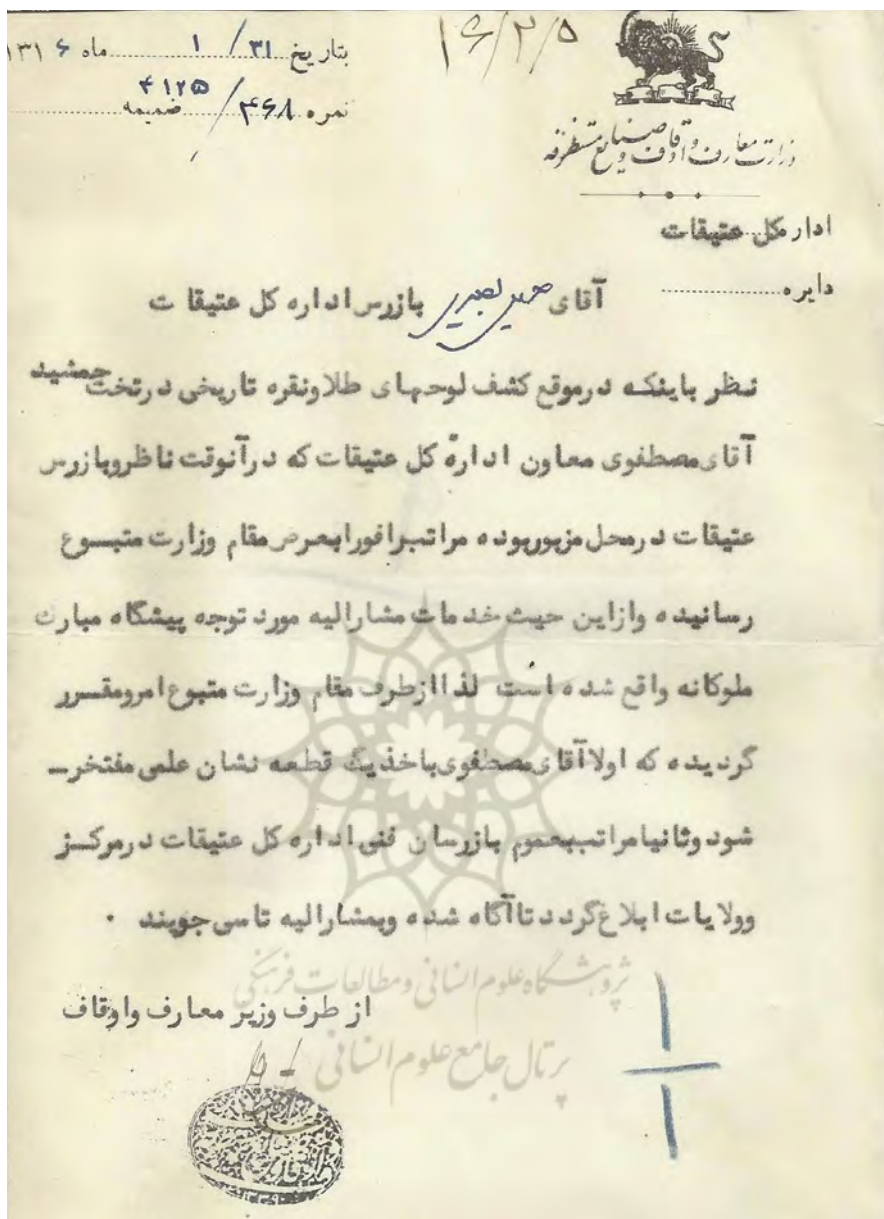 بتاریخ ۳۱ / ۱ ماه ۱۳۱۶
نمره ۴۶۸ / ۴۱۲۵ ضمیمه
۱۶/۲/۵
وزارت معارف و اوقاف و صنایع مستظرفه
اداره کل عتیقات
دایره
آقای بازرس اداره کل عتیقات
نظر باینکه درموقع کشف لوحهای طلاونقره تاریخی درتخت جمشید
آقای مصطفوی معاون ادارهٔ کل عتیقات که درآنوقت ناظروبازرس
عتیقات درمحل مزبوربوده مراتبرافورابعرض مقام وزارت متبوع
رسانیده وازاین حیث خدمات مشارالیه مورد توجه پیشگاه مبارک
ملوکانه واقع شده است لذاازطرف مقام وزارت متبوع امرومقرر
گردیده که اولاآقای مصطفوی باخذیک قطعه نشان علمی مفتخر-
شود وثانیامراتببعموم بازرسان فنی اداره کل عتیقات درمرکز
وولایات ابلاغ گردد تاآگاه شده وبمشارالیه تاسی جویند ۰
از طرف وزیر معارف واوقاف
پژوهشگاه علوم انسانی و مطالعات فرهنگی
پرتال جامع علوم انسانی